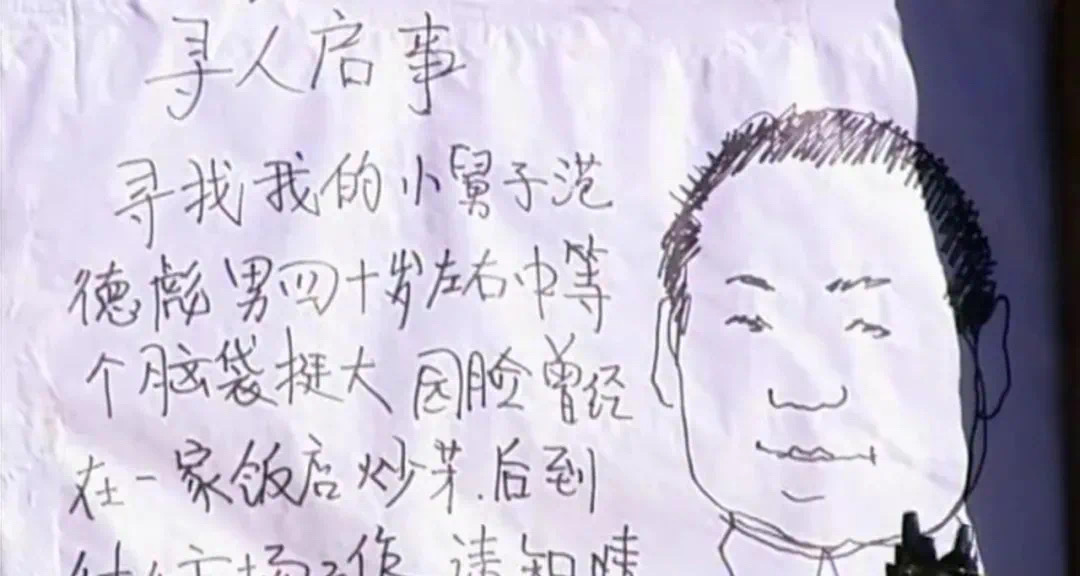 寻人启事
寻找我的小舅子范
德彪男四十岁左右中等
个脑袋挺大 园脸曾经
在一家饭店炒菜.后到
工作 请知情